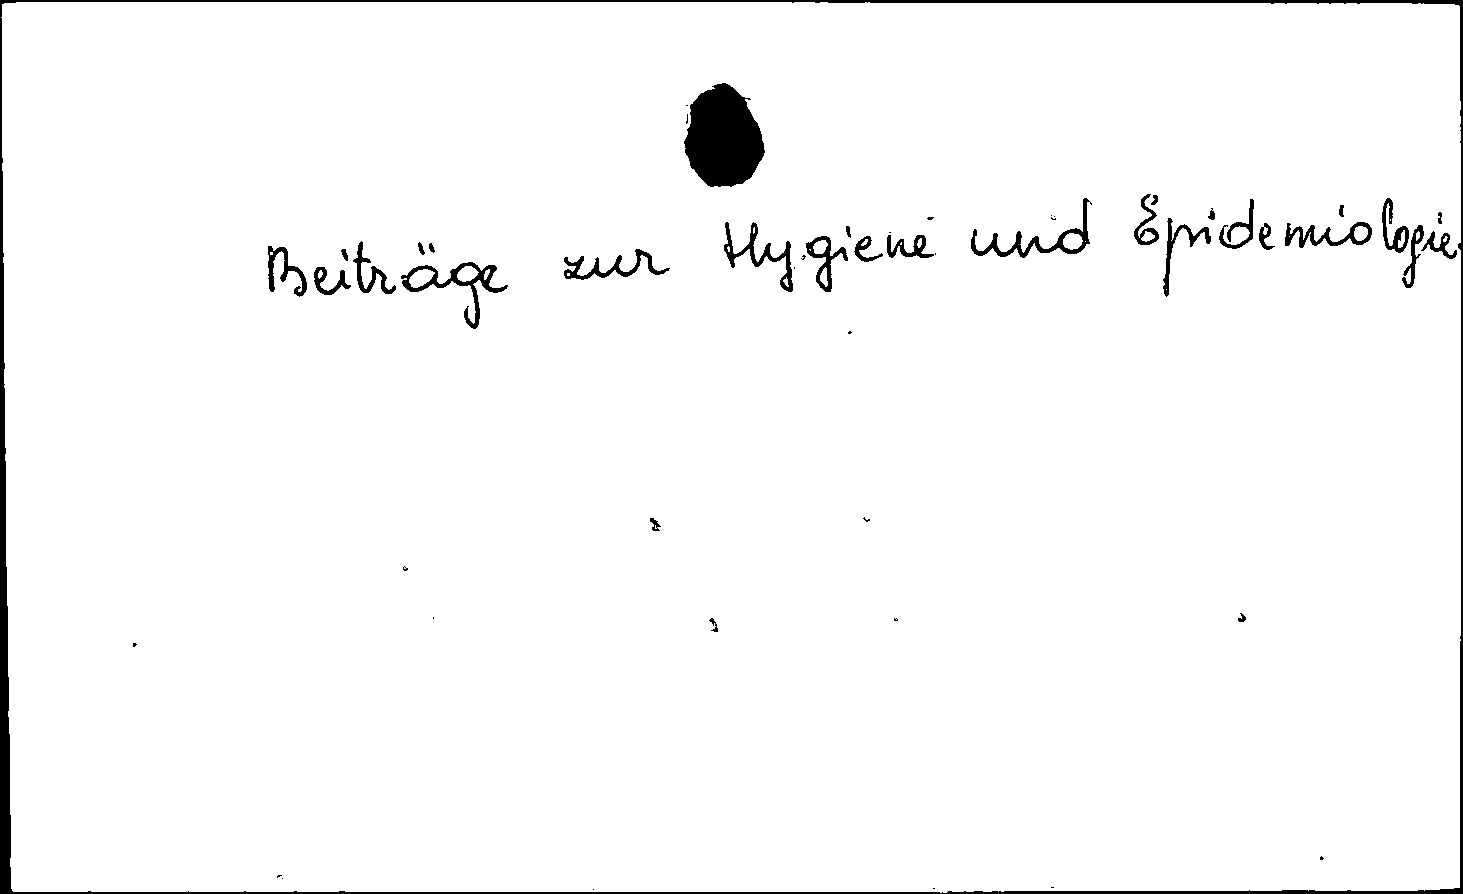 Beiträge zur Hygiene und Epidemiologie